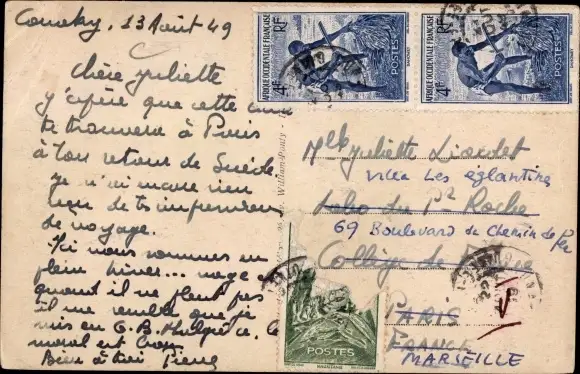 Conakry, 13 Août 49
Chère Juliette
J'espère que cette carte
te trouvera à Paris
à ton retour de Suède.
Je n'ai encore rien
de tes impressions
de voyage.
Ici nous sommes en
plein hiver...
quand il ne pleut pas
il me semble que je
suis en G.B.
moral est bon
Bien à toi Pierre
William-Ponty
AFRIQUE OCCIDENTALE FRANÇAISE RF
4F POSTES
AFRIQUE OCCIDENTALE FRANÇAISE RF
4F POSTES
Mlle Juliette
Villa Les églantines
Labo du Pr Roche
69 Boulevard de Chemin de Fer
Collège de France
PARIS
FRANCE
MARSEILLE
POSTES